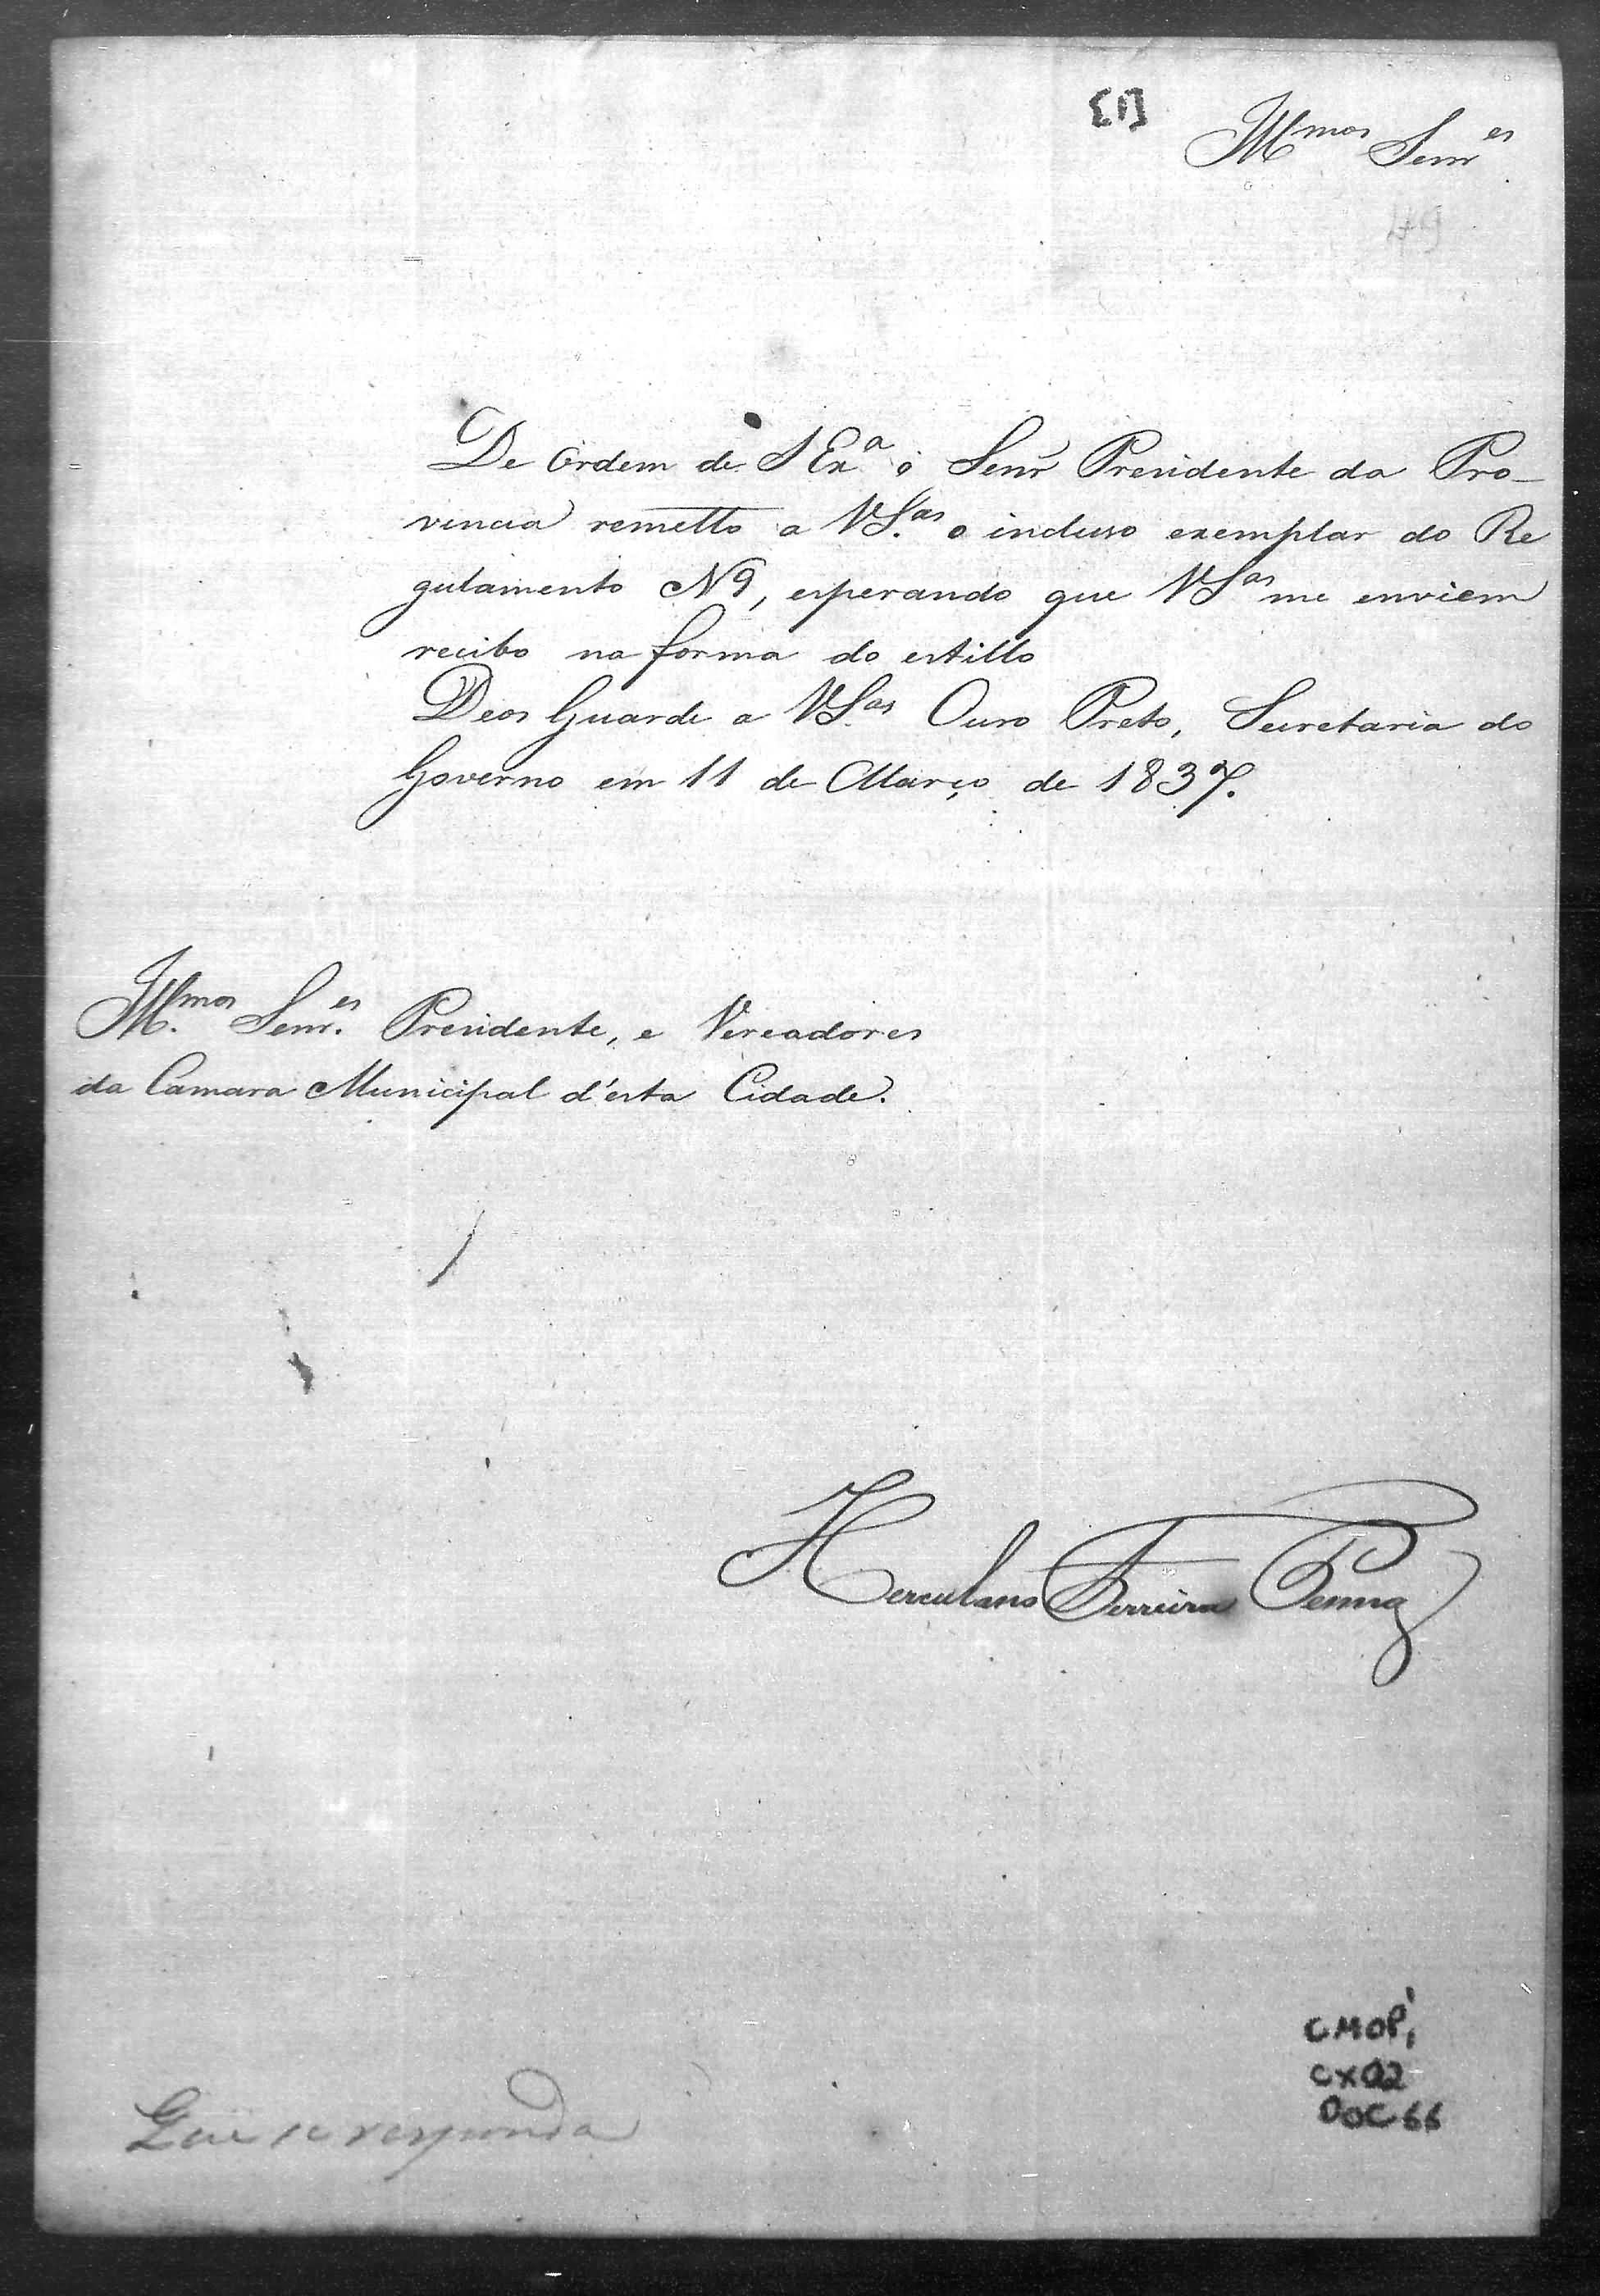 [1]
Illmos Senres
49
De Ordem de S Exa o Senr Presidente da Pro-
vincia remetto a VS.as o incluso exemplar do Re
gulamento N 9, esperando que VSas me enviem
recibo na forma do estillo
Deos Guarde a VS.as Ouro Preto, Secretaria do
Governo em 11 de Março de 1837.
Ill.mos Senr.es Presidente, e Vereadores
da Camara Municipal d'esta Cidade.
Herculano Ferreira Penna
CMOP,
CX02
DOC 66
Que se responda